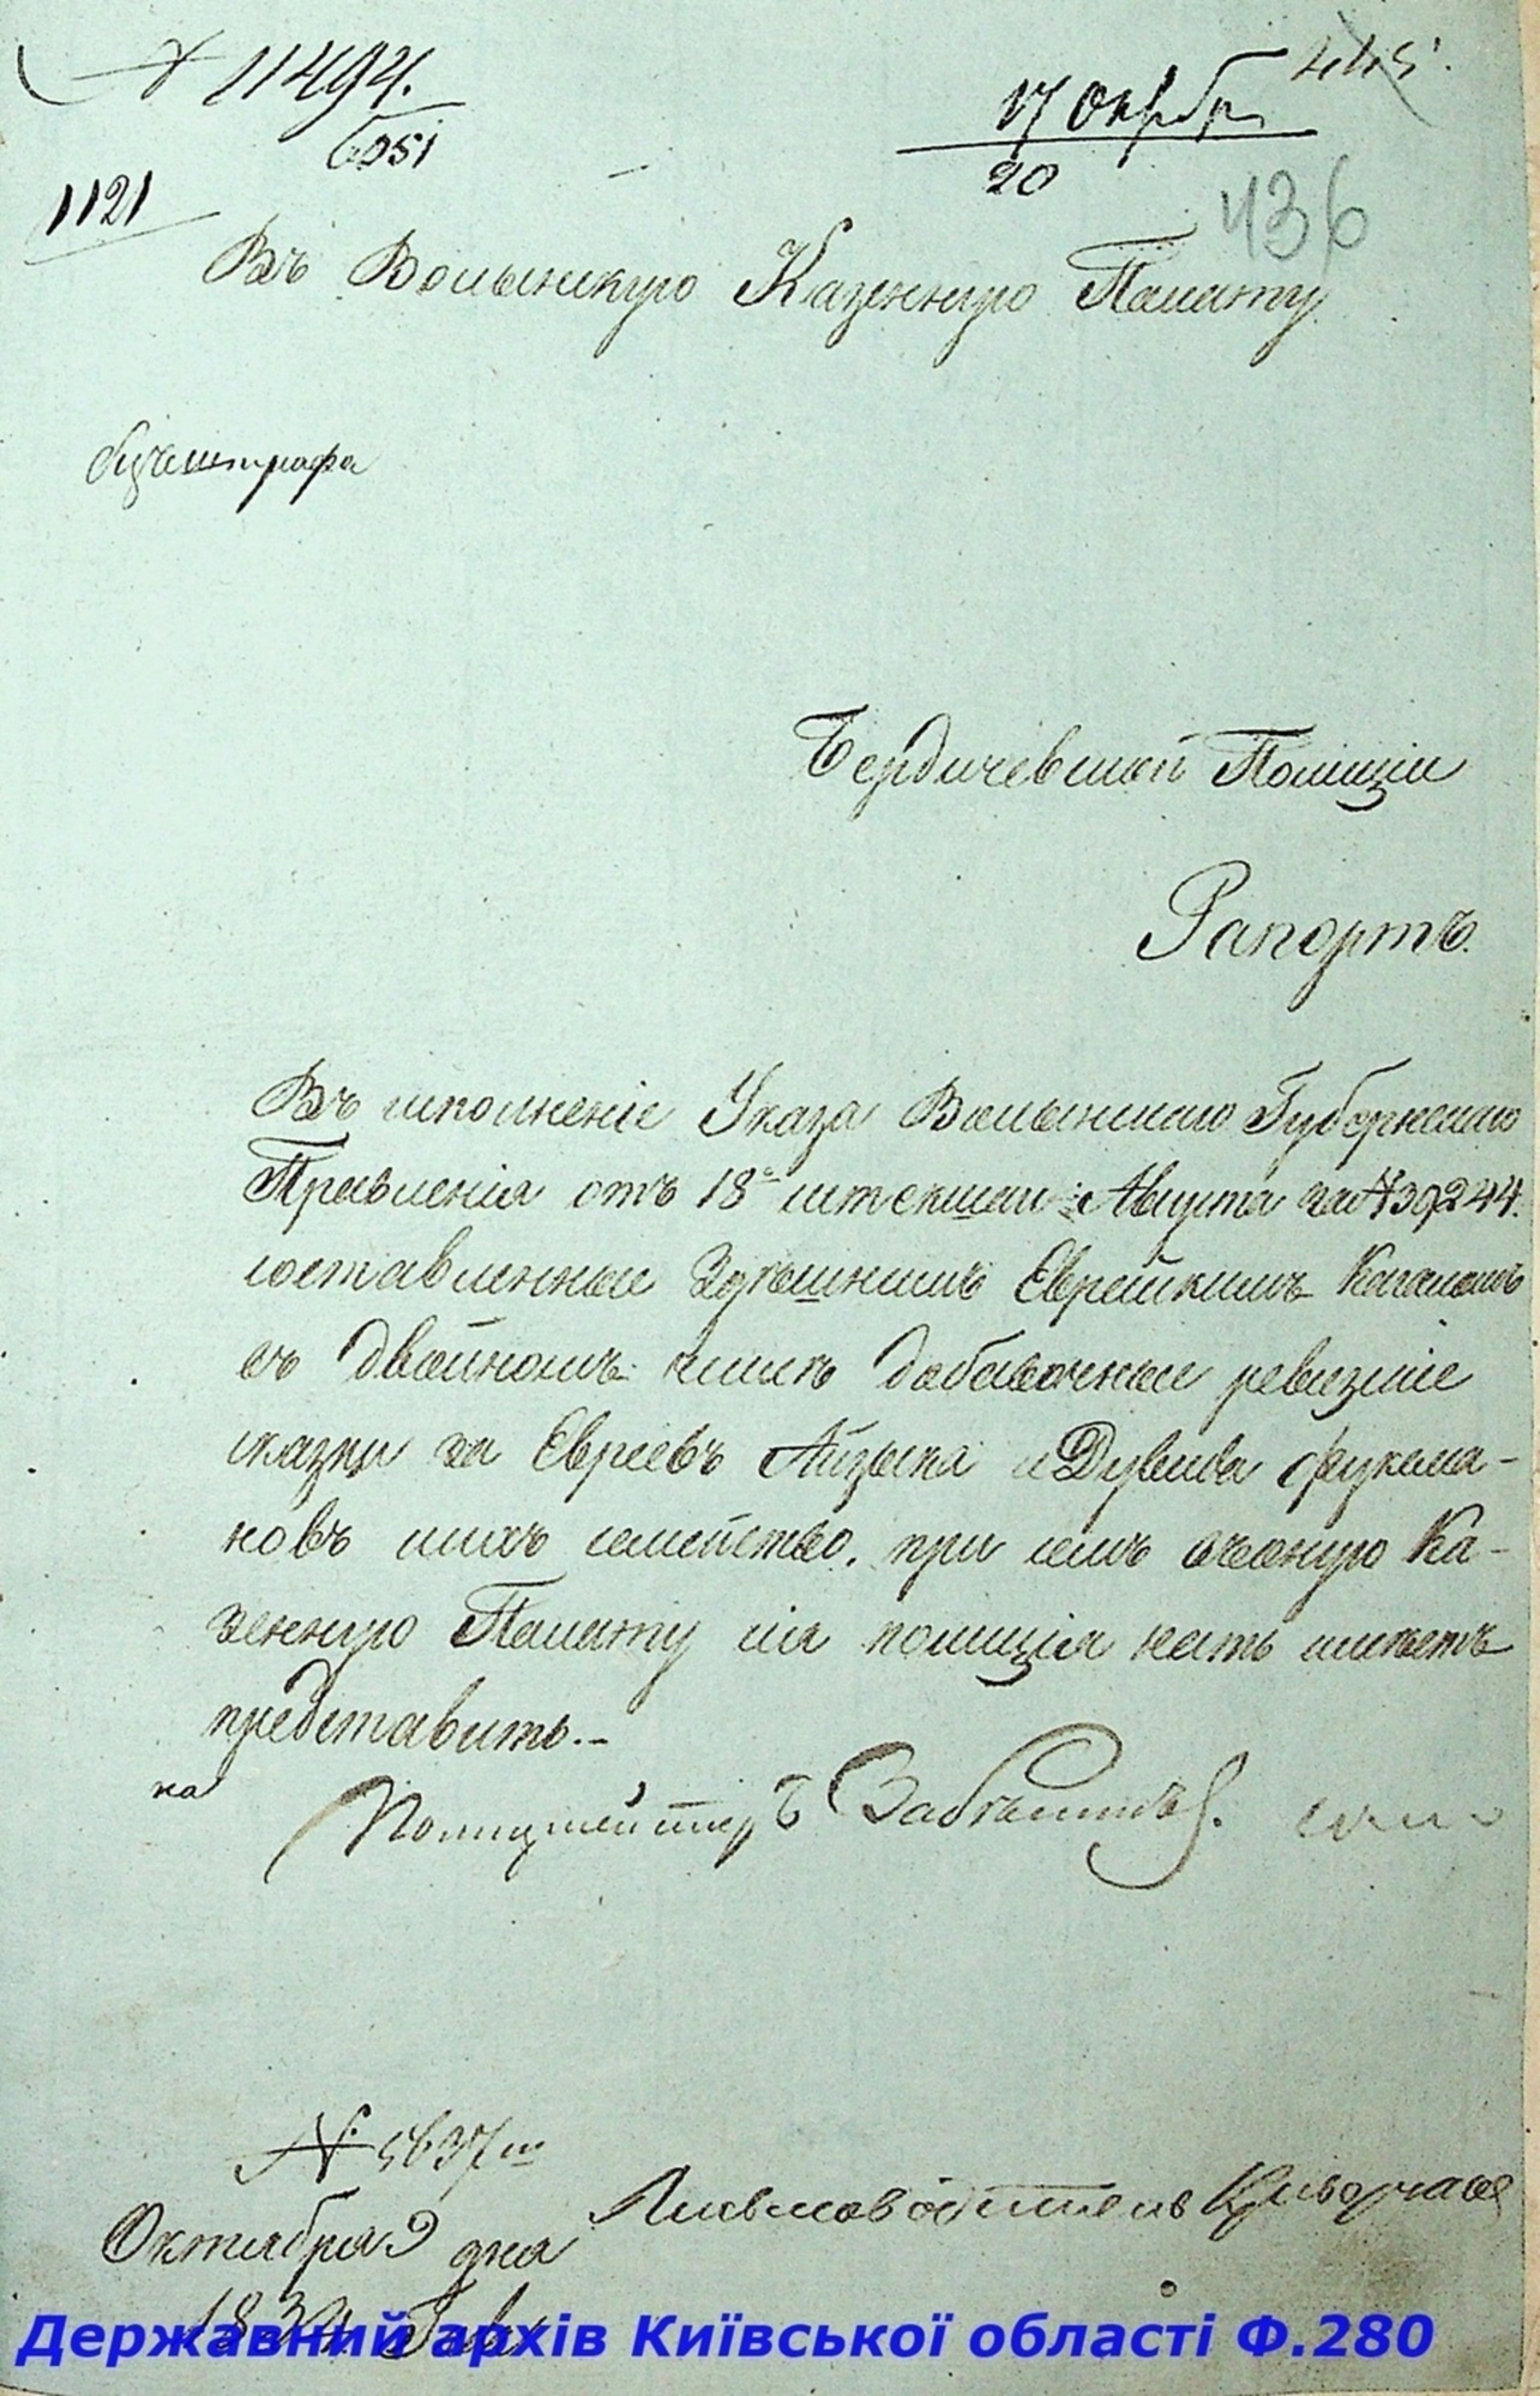 № 11494.
6051
17 Октября
20
445.
436
1121
Въ Волынскую Казенную Палату
безъ штрафа
Бердичевской Полиціи
Рапортъ.
Въ исполненіе Указа Волынскаго Губернскаго
Правленія отъ 18 истекшаго Августа за № 39244.
составленные Здѣшнимъ Еврейскимъ Кагаломъ
въ двойномъ числѣ добавочные ревизкіе
сказки на Евреевъ Айзыка и Дувида Фуксма-
новъ ихъ семейство. при семъ оную Ка-
зенную Палату сія полиція честь имѣетъ
представить.-
Полицмейстеръ
№ 5637
Октября 9 дня
1834 Года
Письмоводитель
Державний архів Київської області Ф.280